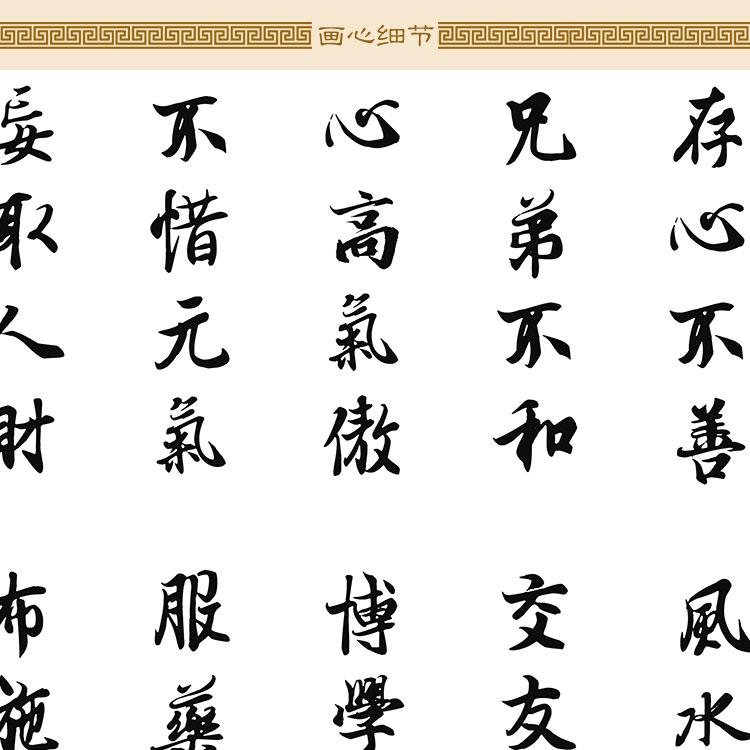 画心细节
存心不善
風水
兄弟不和
交友
心高氣傲
博學
不惜元氣
服藥
妄取人財
布施